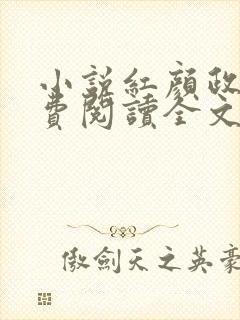 小說紅顏政
費閱讀全文
傲劍天之英豪